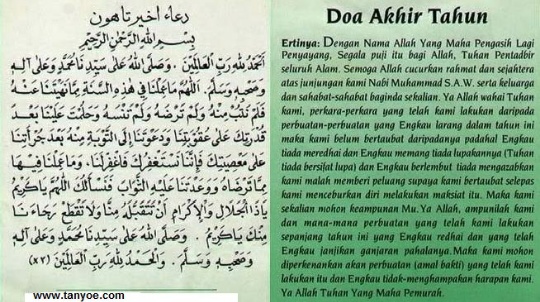 دعاء اخير تاهون
بِسْمِ اللهِ الرَّحْمٰنِ الرَّحِيْمِ
اَلْحَمْدُ لِلهِ رَبِّ الْعَالَمِيْنَ . وَصَلَّى اللهُ عَلَى سَيِّدِنَا مُحَمَّدٍ وَعَلَى آلِهِ
وَصَحْبِهِ وَسَلَّمَ. اَللّٰهُمَّ مَا عَمِلْنَا فِي هٰذِهِ السَّنَةِ مِمَّا نَهَيْتَنَا عَنْهُ
فَلَمْ نَتُبْ مِنْهُ وَلَمْ تَرْضَهُ وَلَمْ تَنْسَهُ وَحَلُمْتَ عَلَيْنَا بَعْدَ
قُدْرَتِكَ عَلَى عُقُوْبَتِنَا وَدَعَوْتَنَا إِلَى التَّوْبَةِ مِنْهُ بَعْدَ جَرَاءَتِنَا
عَلَى مَعْصِيَتِكَ فَإِنَّا نَسْتَغْفِرُكَ فَاغْفِرْلَنَا. وَمَا عَمِلْنَا فِيْهَا
مِمَّا تَرْضَاهُ وَوَعَدْتَنَا عَلَيْهِ الثَّوَابَ فَنَسْأَلُكَ اللّٰهُمَّ يَا كَرِيْمُ
يَا ذَا الْجَلَالِ وَالْإِكْرَامِ أَنْ تَتَقَبَّلَهُ مِنَّا وَلَا تَقْطَعْ رَجَاءَنَا
مِنْكَ يَا كَرِيْمُ . وَصَلَّى اللهُ عَلَى سَيِّدِنَا مُحَمَّدٍ وَعَلَى آلِهِ
وَصَحْبِهِ وَسَلَّمَ . وَالْحَمْدُ لِلهِ رَبِّ الْعَالَمِيْنَ (٣×)
www.tanyoe.com
Doa Akhir Tahun
Ertinya: Dengan Nama Allah Yang Maha Pengasih Lagi
Penyayang, Segala puji itu bagi Allah, Tuhan Pentadbir
seluruh Alam. Semoga Allah cucurkan rahmat dan sejahtera
atas junjungan kami Nabi Muhammad S.A.W. serta keluarga
dan sahabat-sahabat baginda sekalian. Ya Allah wahai Tuhan
kami, perkara-perkara yang telah kami lakukan daripada
perbuatan-perbuatan yang Engkau larang dalam tahun ini
maka kami belum bertaubat daripadanya padahal Engkau
tiada meredhai dan Engkau memang tiada lupakannya (Tuhan
tiada bersifat lupa) dan Engkau berlembut tiada mengazabkan
kami malah memberi peluang supaya kami bertaubat selepas
kami menceburkan diri melakukan maksiat itu. Maka kami
sekalian mohon keampunan Mu.Ya Allah, ampunilah kami
dan mana-mana perbuatan yang telah kami lakukan
sepanjang tahun ini yang Engkau redhai dan yang telah
Engkau janjikan ganjaran pahalanya.Maka kami mohon
diperkenankan akan perbuatan (amal bakti) yang telah kami
lakukan itu dan Engkau tidak-menghampakan harapan kami.
Ya Allah Tuhan Yang Maha Pemurah.